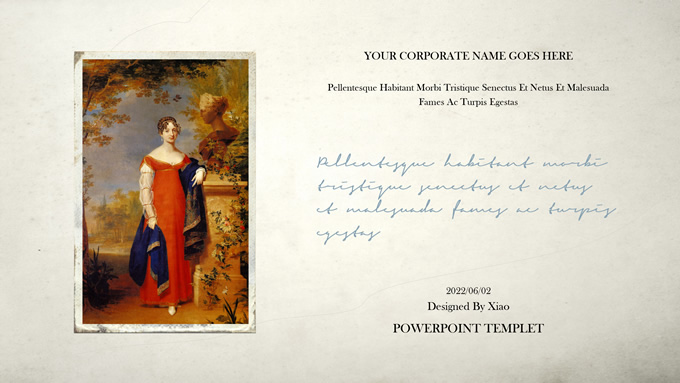 YOUR CORPORATE NAME GOES HERE
Pellentesque Habitant Morbi Tristique Senectus Et Netus Et Malesuada
Fames Ac Turpis Egestas
Pellentesque habitant morbi
tristique senectus et netus
et malesuada fames ac turpis
egestas
2022/06/02
Designed By Xiao
POWERPOINT TEMPLET